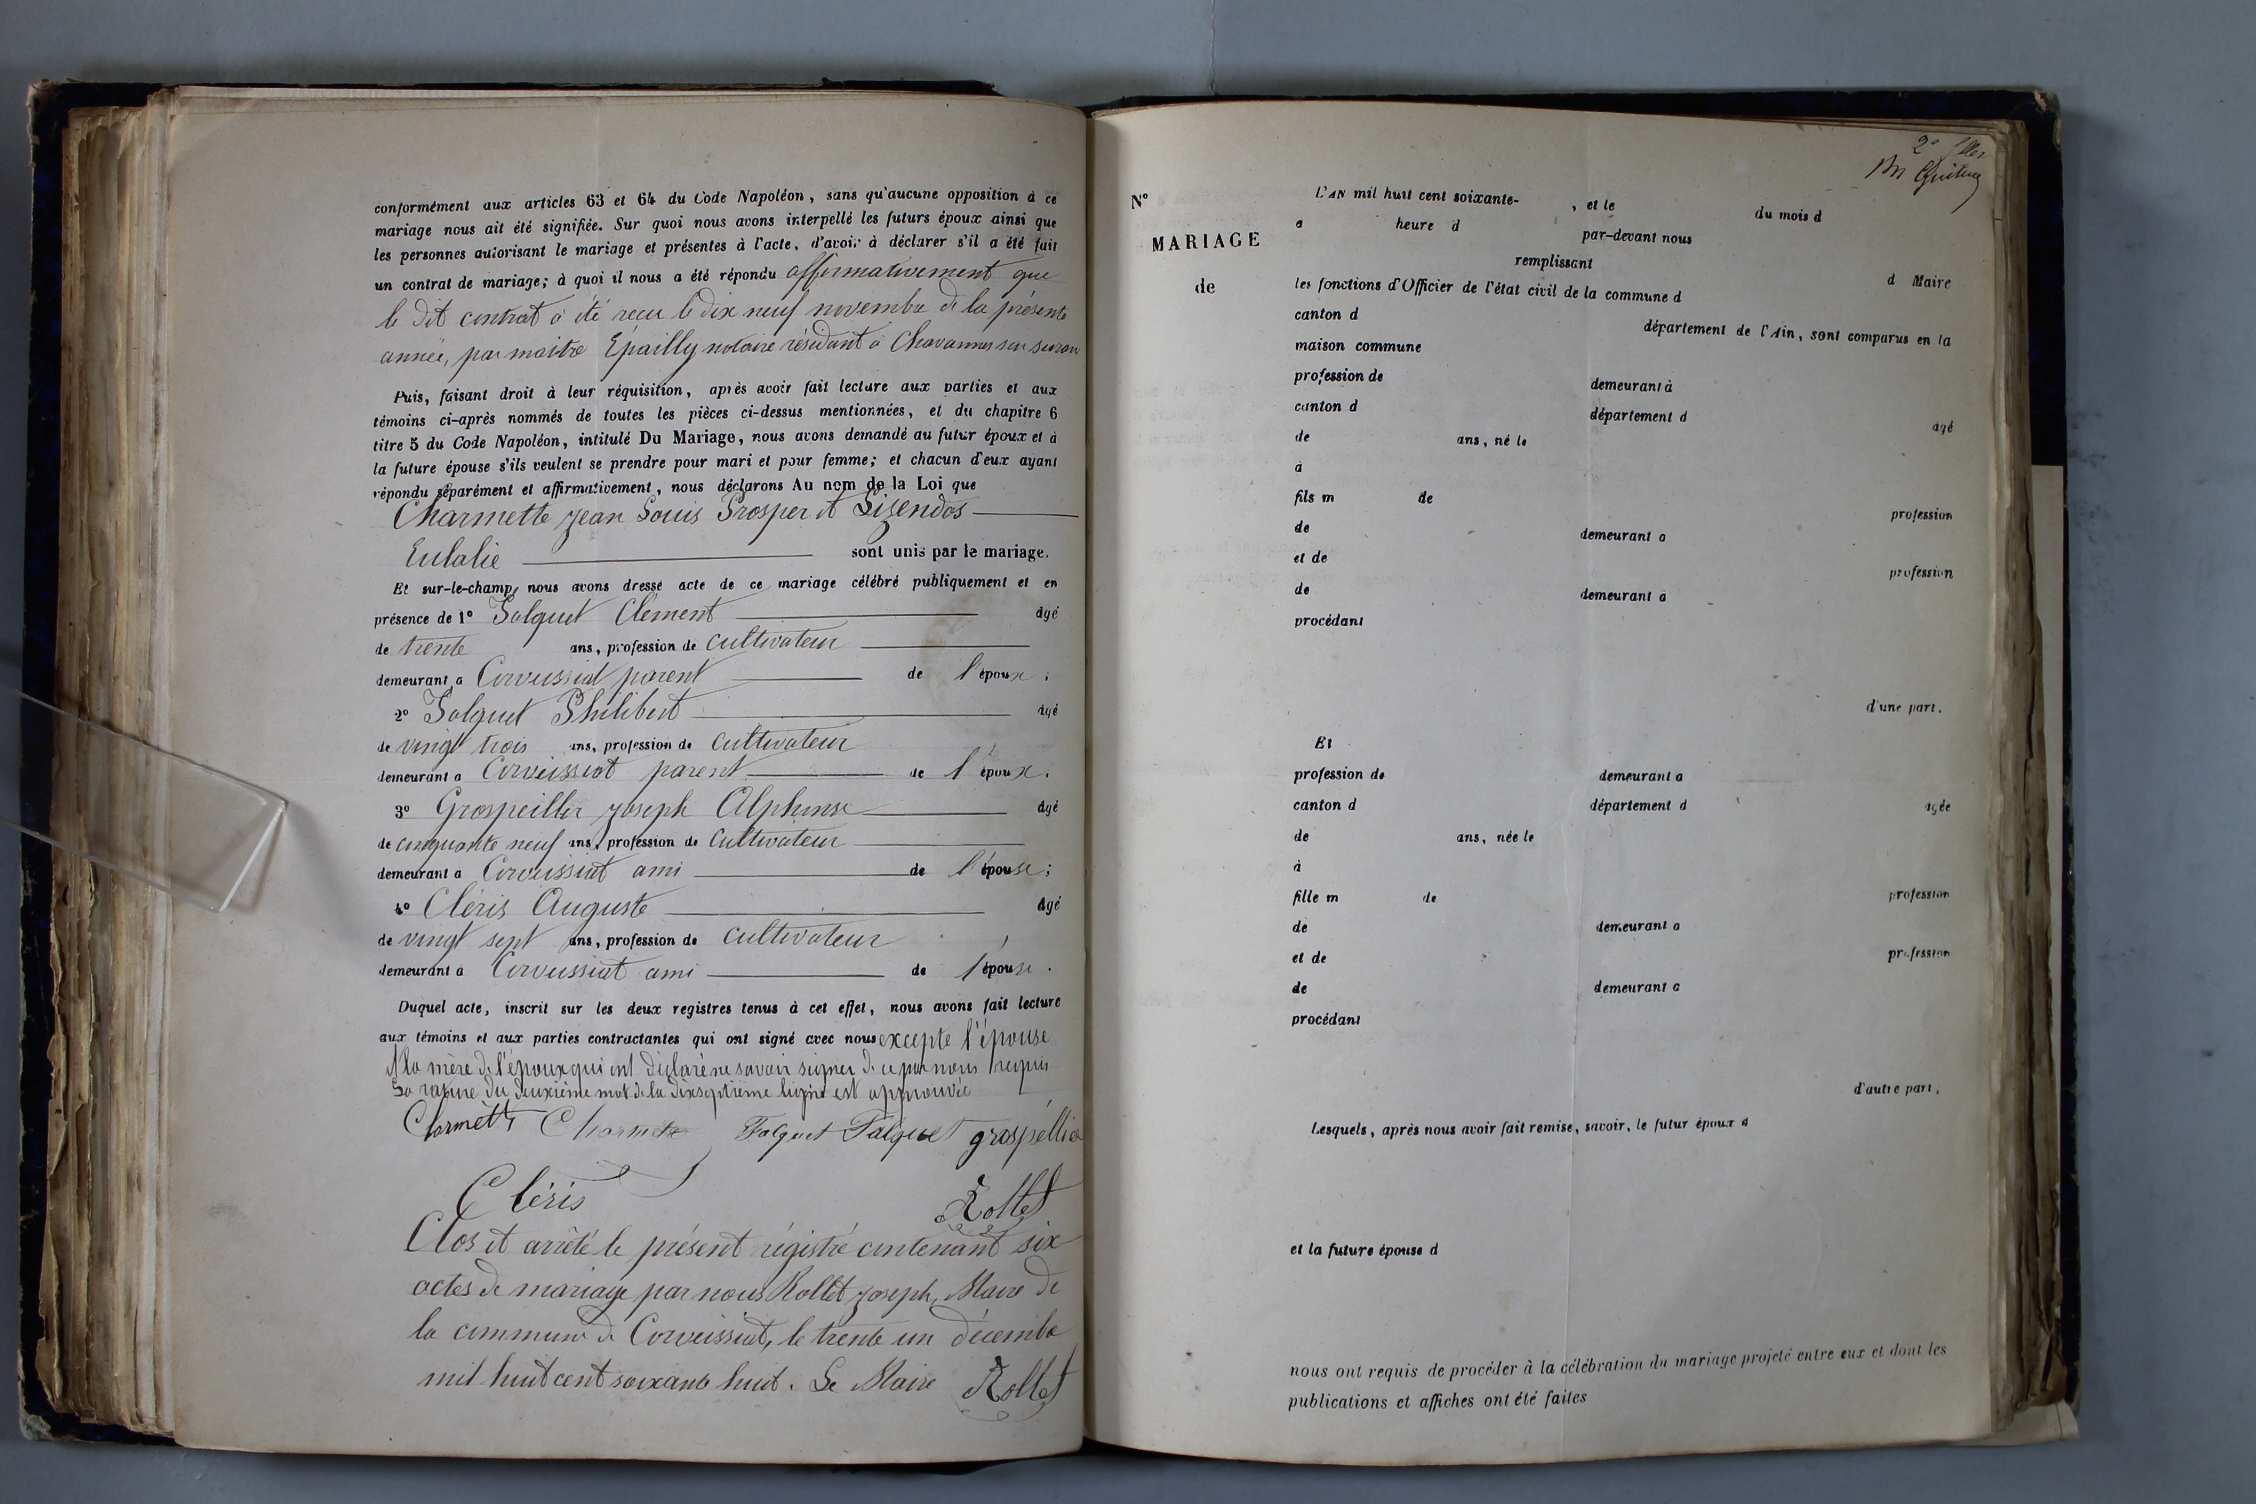 conformément aux articles 63 et 64 du Code Napoléon, sans qu'aucune opposition à ce
mariage nous ait été signifiée. Sur quoi nous avons interpellé les futurs époux ainsi que
les personnes autorisant le mariage et présentes à l'acte, d'avoir à déclarer s'il a été fait
un contrat de mariage; à quoi il nous a été répondu affirmativement que
le dit contrat a été recu le dix neuf novembre de la présente
année, par maitre Épailly notaire résidant à Chavannes sur suran
Puis, faisant droit à leur réquisition, après avoir fait lecture aux parties et aux
témoins ci-après nommés de toutes les pièces ci-dessus mentionnées, et du chapitre 6
titre 5 du Code Napoléon, intitulé Du Mariage, nous avons demandé au futur époux et à
la future épouse s'ils veulent se prendre pour mari et pour femme; et chacun d'eux ayant
répondu séparément et affirmativement, nous déclarons Au nom de la Loi que
Charmette Jean Louis Prosper et Lizendos
Eulalie sont unis par le mariage.
Et sur-le-champ, nous avons dressé acte de ce mariage célébré publiquement et en
présence de 1° Falquet Clément âgé
de trente ans, profession de cultivateur
demeurant à Corveissiat parent de l'époux;
2° Falquet Philibert âgé
de vingt trois ans, profession de cultivateur
demeurant à Corveissiat parent de l'époux.
3° Grospeiller Joseph Alphonse âgé
de cinquante neuf ans, profession de cultivateur
demeurant à Corveissiat ami de l'épouse;
4° Cléris Auguste âgé
de vingt sept ans, profession de cultivateur
demeurant à Corveissiat ami de l'épouse.
Duquel acte, inscrit sur les deux registres tenus à cet effet, nous avons fait lecture
aux témoins et aux parties contractantes qui ont signé avec nous excepte l'épouse
et la mère de l'époux qui ont déclaré ne savoir signer de ce par nous requis
La rature du deuxième mot de la dixseptième ligne est approuvée
Charmette Charmette Falquet Falquet grospellier
Cléris Rollet
Clos et arrêté le présent régistre contenant six
actes de mariage par nous Rollet Joseph, Maire de
la commune de Corveissiat, le trente un décembre
mil huit cent soixante huit. Le Maire Rollet
N°
MARIAGE
de
L'AN mil huit cent soixante- , et le du mois d
à heure d par-devant nous
remplissant
les fonctions d'Officier de l'état civil de la commune d d Maire
canton d département de l'Ain, sont comparus en la
maison commune
profession de demeurant à
canton d département d âgé
de ans, né le
à
fils m de profession
de demeurant à
et de profession
de demeurant à
procédant
d'une part.
Et
profession de demeurant à
canton d département d âgée
de ans, née le
à
fille m de profession
de demeurant à
et de profession
de demeurant à
procédant
d'autre part.
Lesquels, après nous avoir fait remise, savoir, le futur époux d
et la future épouse d
nous ont requis de procéder à la célébration du mariage projeté entre eux et dont les
publications et affiches ont été faites